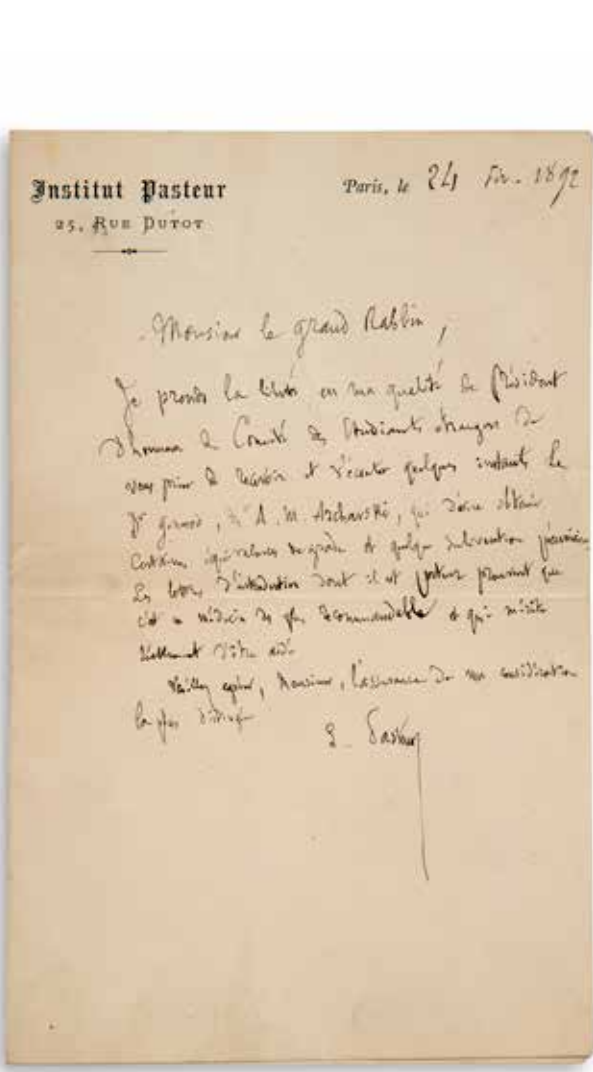 Institut Pasteur
25, RUE DUTOT
Paris, le 24 Fév. 1892
Monsieur le grand Rabbin,
Je prends la liberté en ma qualité de Président
d'honneur du Comité des Etudiants étrangers de
vous prier de recevoir et d'écouter quelques instants le
Dr A. M. Ascharski, qui désire obtenir
certaines équivalences de grade et quelque subvention pécuniaire.
Les lettres d'introduction dont il est porteur prouvent que
c'est un médecin des plus recommandable et qui mérite
réellement d'être aidé
Veuillez agréer, Monsieur, l'assurance de ma considération
la plus distinguée
L. Pasteur